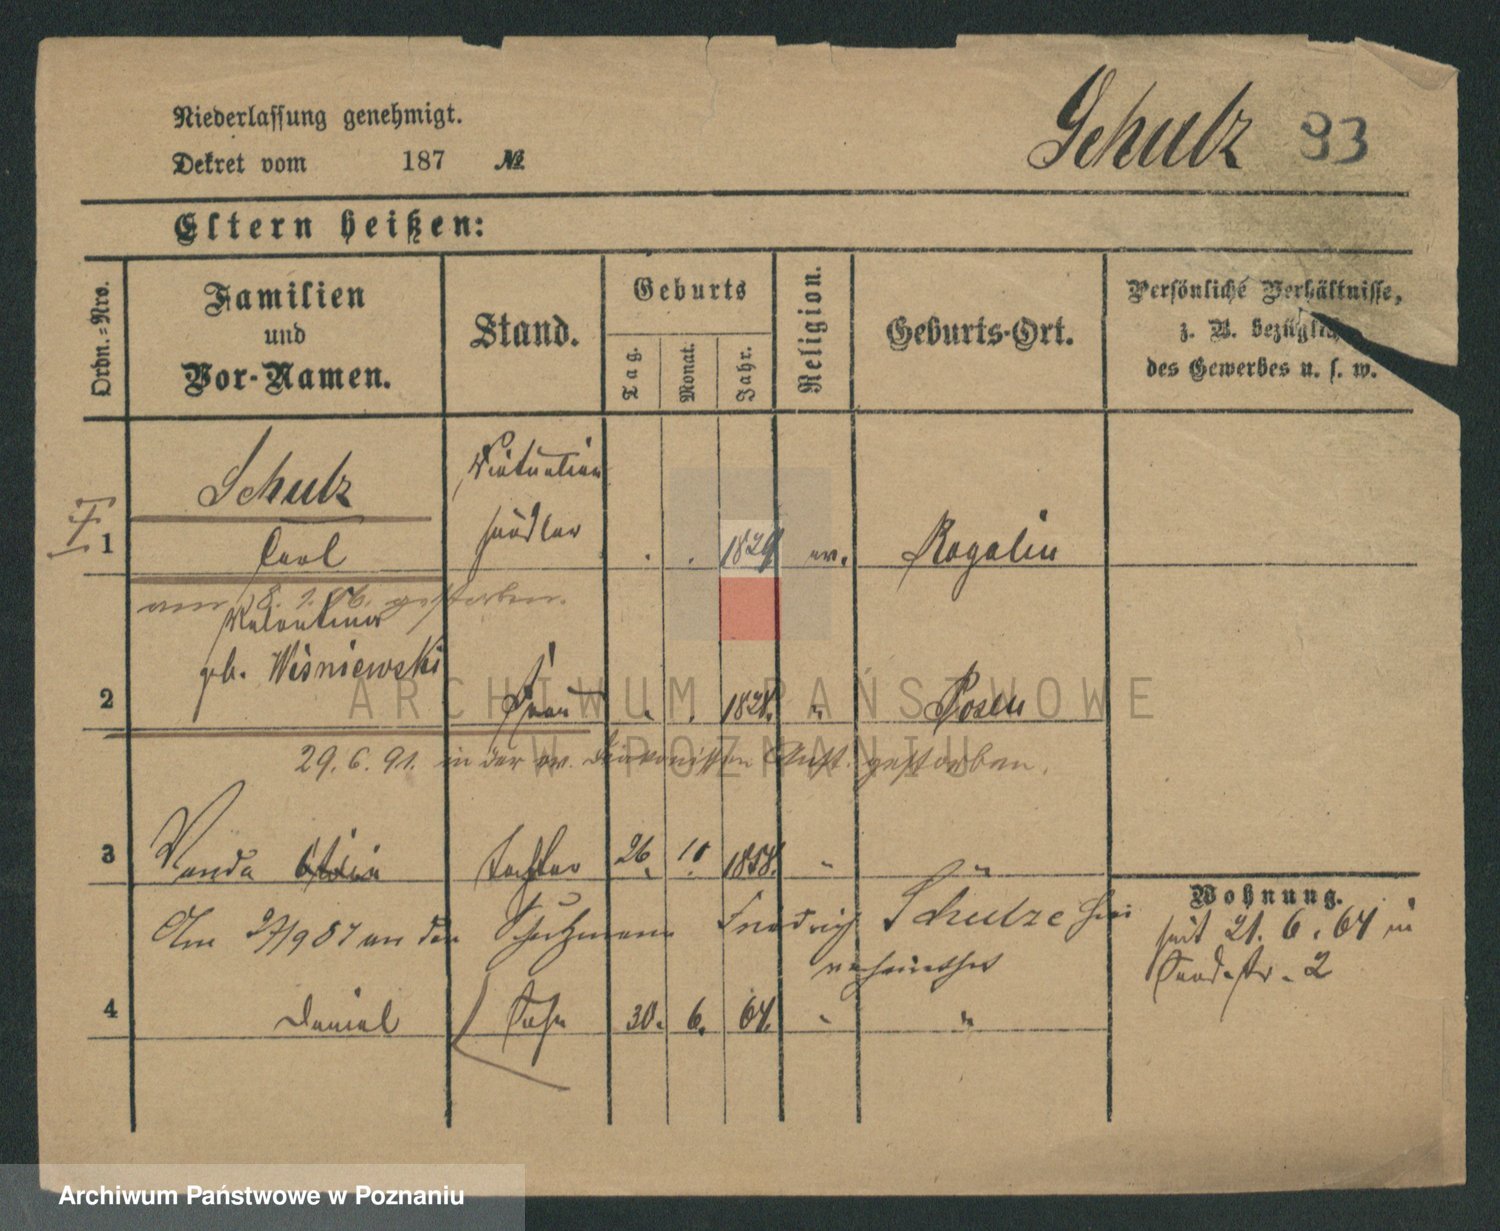 Niederlassung genehmigt.
Dekret vom 187 №
Schulz 93
Eltern heißen:
Ordn.-Nro.
Familien
und
Vor-Namen.
Stand.
Geburts
Tag.
Monat.
Jahr.
Religion.
Geburts-Ort.
Persönliche Verhältnisse,
z. B. bezüglich
des Gewerbes u. s. w.
Schulz Victualien
1 Carl händler . . 1829 ev. Rogalin
am 18. gestorben.
Valentine
gb. Wisniewski
2 Frau . . 1828. " Posen
29. 6. 91. in der ev. Diakonissen Anst. gestorben.
3 Wanda Tochter 26. 10. 1858. " "
Am 27/9 87 an den Schutzmann Friedrich Schulze hier
verheirathet
4 Daniel Sohn 30. 6. 64. " "
Wohnung.
seit 21. 6. 64 in
Sandstr. 2
ARCHIWUM PAŃSTWOWE
W POZNANIU
Archiwum Państwowe w Poznaniu